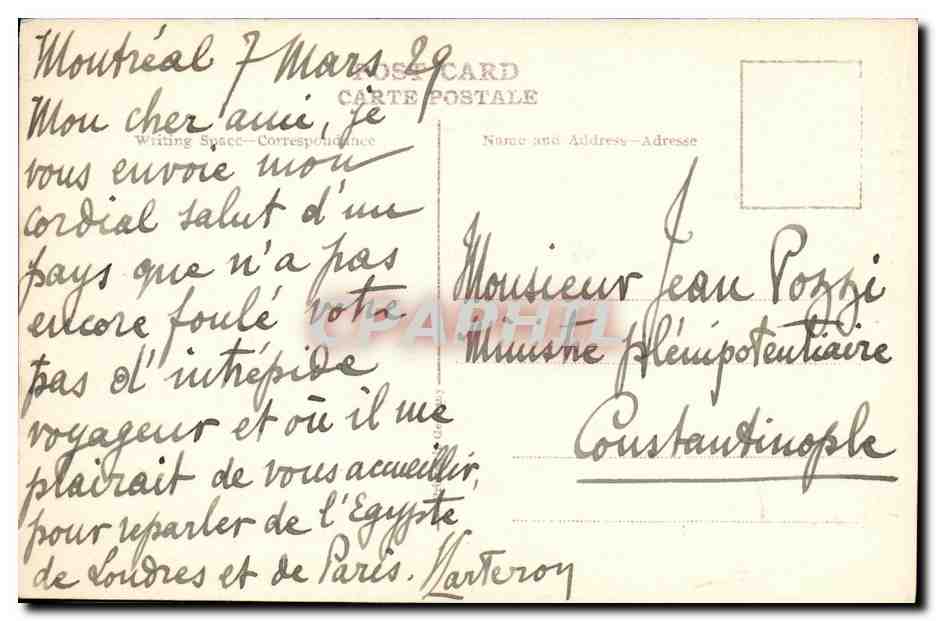 Montréal 7 Mars 29
POST CARD
CARTE POSTALE
Writing Space—Correspondance
Name and Address—Adresse
Mon cher ami, je
vous envoie mon
cordial salut d'un
pays que n'a pas
encore foulé votre
pas d'intrépide
voyageur et où il me
plairait de vous accueillir,
pour reparler de l'Egypte
de Londres et de Paris.
Monsieur Jean Pozzi
Ministre plénipotentiaire
Constantinople
CPAPHIL